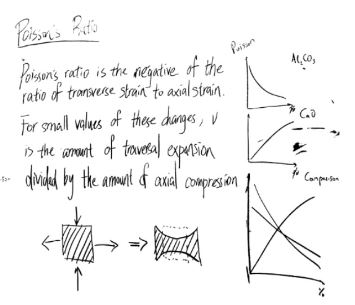 Poisson's Ratio
Poisson's ratio is the negative of the
ratio of transverse strain to axial strain.
For small values of these changes, ν
is the amount of traversal expansion
divided by the amount of axial compression
Poisson
%
CaO
%
Comparison
%